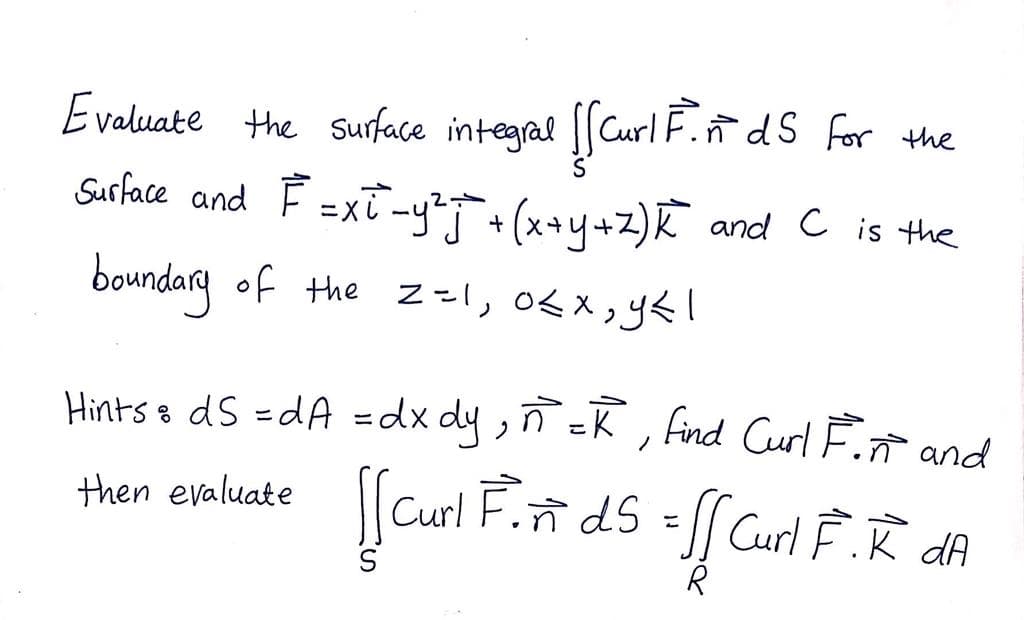 Evaluate the surface integral ∬_S Curl F⃗.n⃗ dS for the
Surface and F⃗ = xi⃗ - y²j⃗ + (x+y+z)k⃗ and C is the
boundary of the z=1, 0≤x,y≤1
Hints: dS = dA = dx dy, n⃗ = k⃗, find Curl F⃗.n⃗ and
then evaluate ∬_S Curl F⃗.n⃗ dS = ∬_R Curl F⃗.k⃗ dA